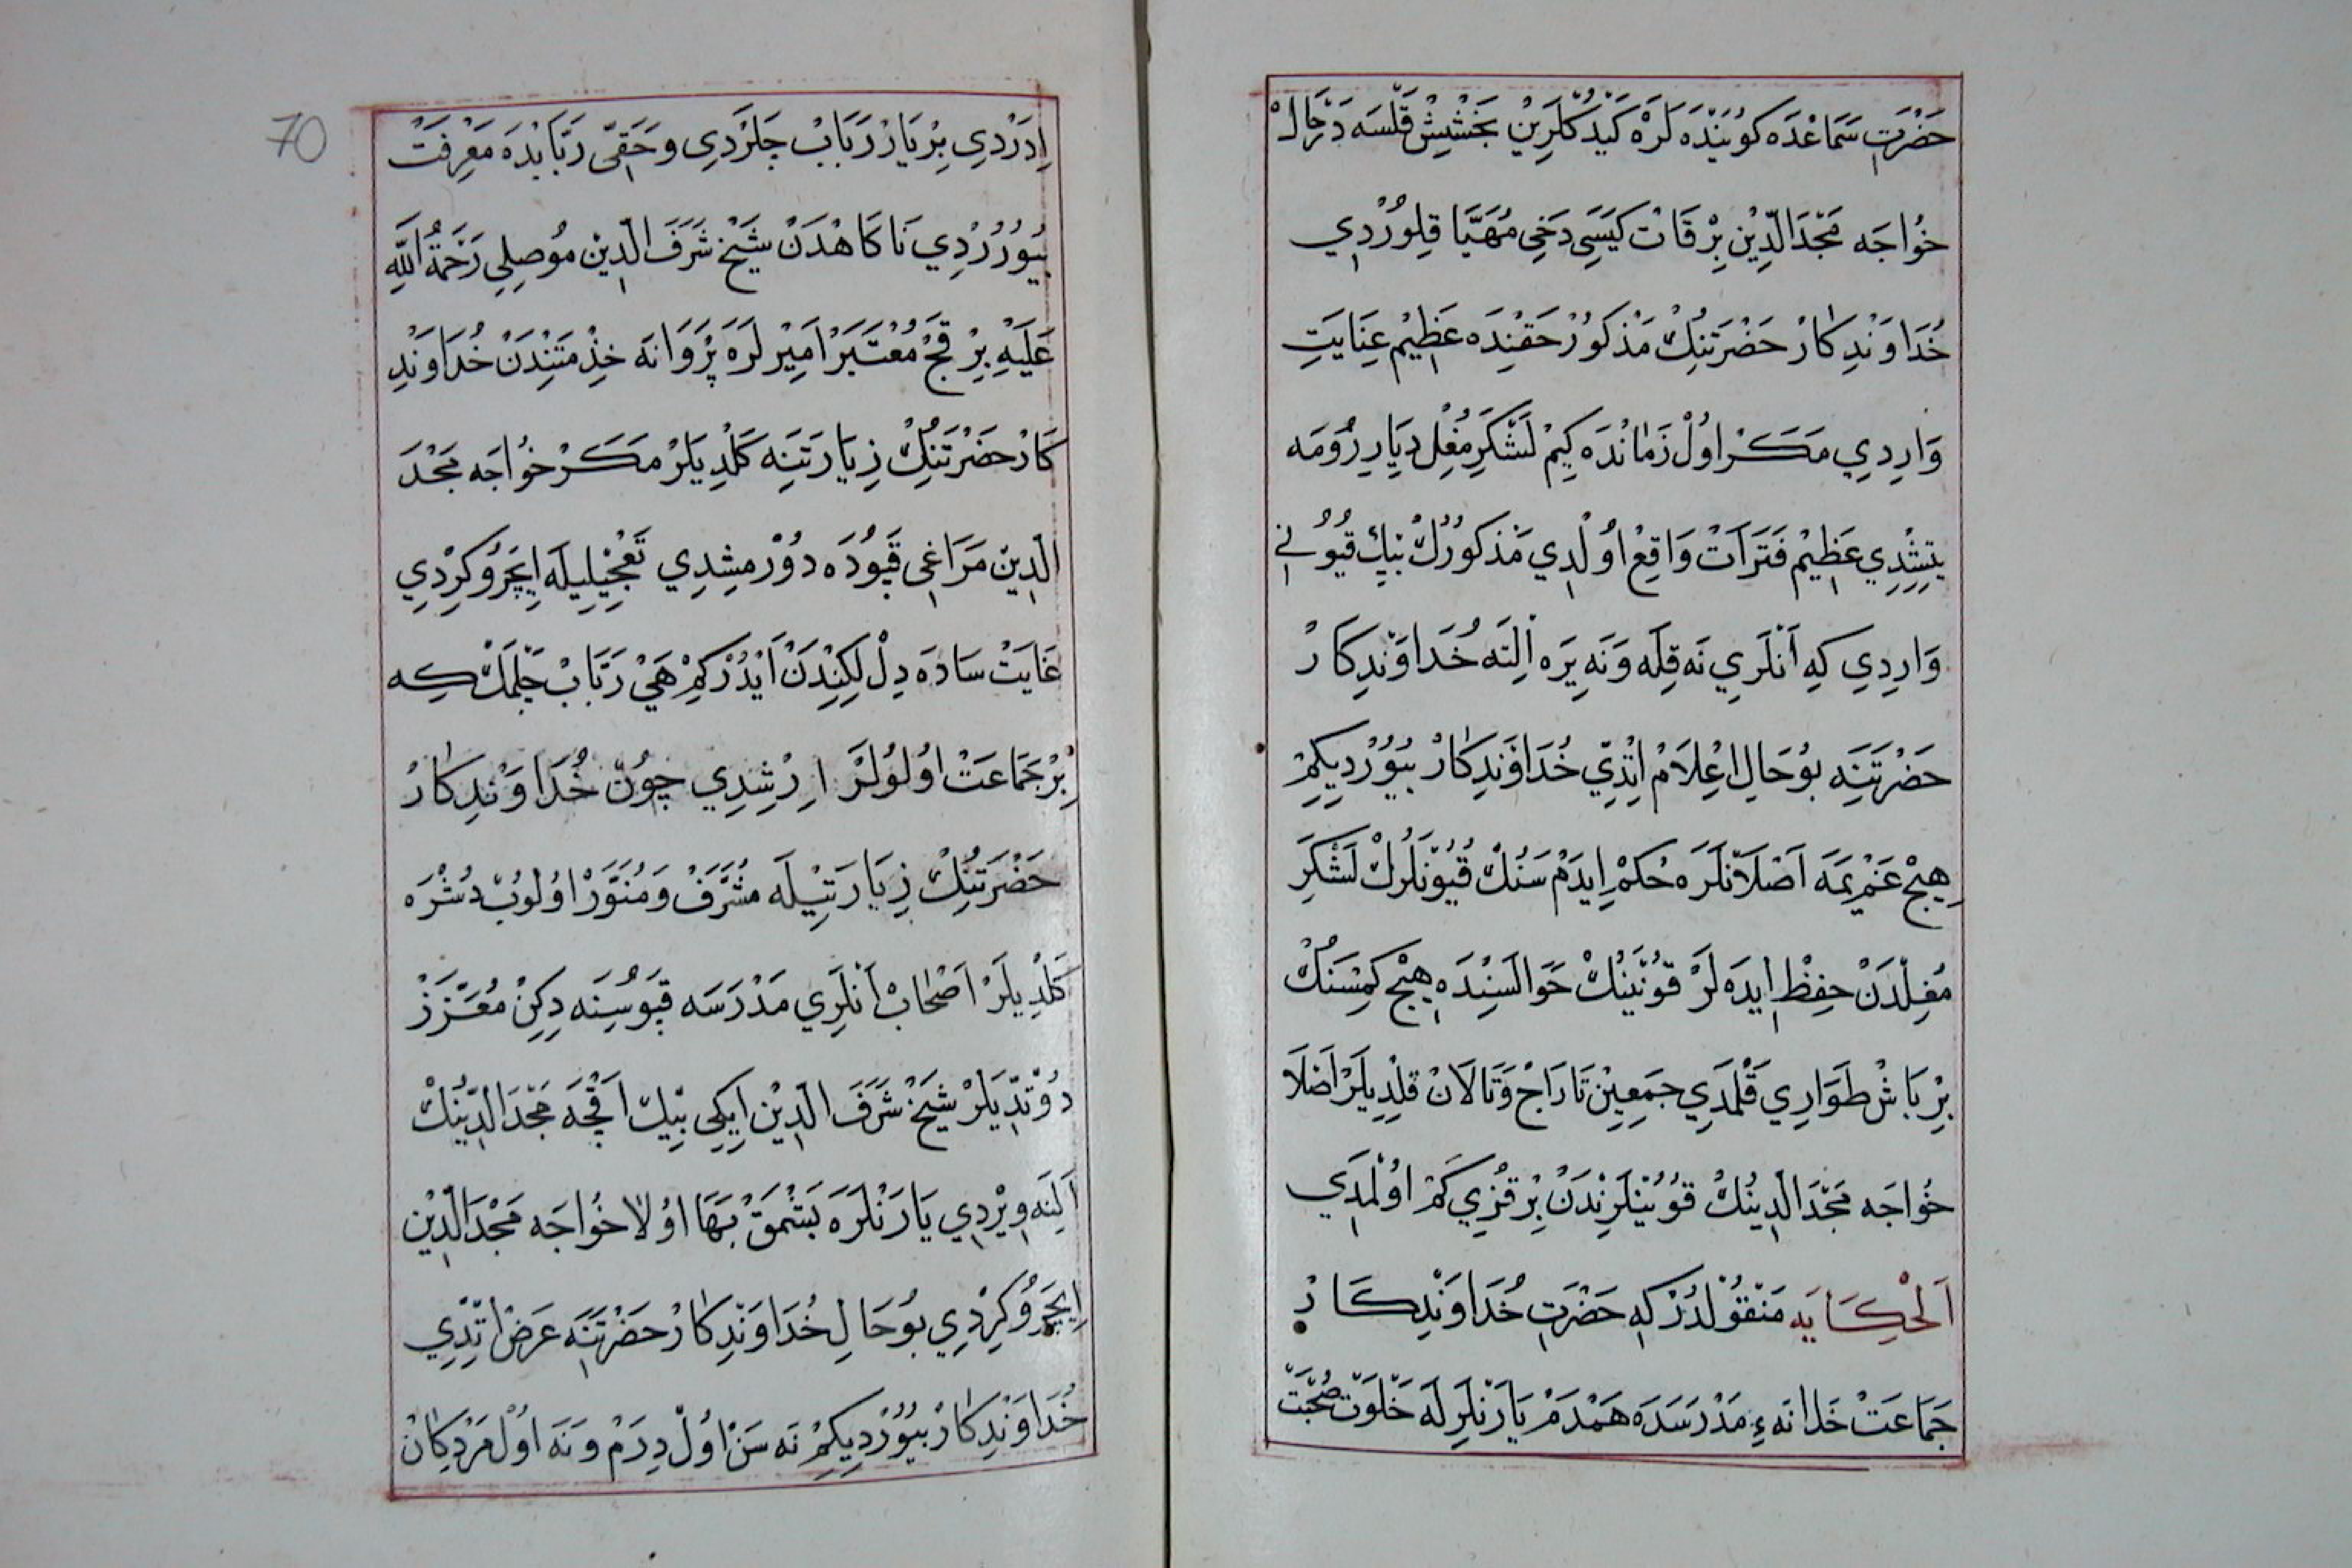 حَضْرَتِ سَمَاعْدَه كُويَنْدَه لَرَه كَيْدُكْلَرِينْ بَخْشِيشْ قِلْسَه دَرْحَالْ
خُواجَه مَجْدَالدِّينْ بِرْقَاتْ كَيَسِى دَخِى مُهَيَّا قِلُورْدِي
خُدَاوَنْدِكَارْ حَضْرَتِنُكْ مَذْكُورْ حَقِنْدَه عَظِيمْ عِنَايَتِ
وَارِدِي مَكَرْ اوُلْ زَمَانْدَه كِيمْ لَشْكَرِ مُغُلْ دِيَارِ رُومَه
يِتِشْدِي عَظِيمْ فَتَرَاتْ وَاقِعْ اوُلْدِي مَذْكُورُكْ بِيكْ قُيُونِى
وَارِدِي كِه اَنْلَرِي نَه قِلَه وَنَه يِرَه اِلِتَه خُدَاوَنْدِكَارْ
حَضْرَتِنَه بُوحَالِ اعْلَامْ اِتْدِي خُدَاوَنْدِكَارْ بُيُورْدِيكِمْ
هِيچْ غَمْ يِمَه اَصْلَانْلَرَه حُكْمْ اِيدَمْ سَنُكْ قُيُونْلَرُكْ لَشْكَرِ
مُغُلْدَنْ حِفْظْ اِيدَه لَرْ قُونْيَنُكْ حَوَالَسِنْدَه هِيچْ كِمْسَنُكْ
بِرْ بَاشْ طَوَارِي قَلْمَدِي جَمِعِينْ تَارَاجْ وَتَالَانْ قِلْدِيلَرْ اَصْلَا
خُواجَه مَجْدَالدِّينُكْ قُويُنْلَرِنْدَنْ بِرْ قُزِي كَمْ اوُلْمَدِي
اَلْحِكَايَه مَنْقُولْدُرْ كِه حَضْرَتِ خُدَاوَنْدِكَارْ
جَمَاعَتْ خَانَهءِ مَدْرَسَدَه هَمْدَمْ يَارَنْلَرِلَه خَلْوَتْ صُحْبَتْ
اِدَرْدِي بِرْ يَارْ رَبَابْ چَلَرْدِي وحَقِّى رَبَابْدَه مَعْرِفَتْ
بُيُورُرْدِي نَاكَاهْدَنْ شَيْخْ شَرَفَ الدِّينْ مُوصِلِي رَحْمَةُ اللّٰهِ
عَلَيْهِ بِرْ قَچْ مُعْتَبَرْ اَمِيرْلَرَه پَرْوَانَه خِذْمَتِنْدَنْ خُدَاوَنْدِ
كَارْ حَضْرَتِنُكْ زِيَارَتِنَه كَلْدِيلَرْ مَكَرْ خُواجَه مَجْدَ
الدِّينْ مَرَاغِى قَپُودَه دُورْمِشِدِي تَعْجِيلِيلَه اِيچَرُو كِرْدِي
غَايَتْ سَادَه دِلْ لِكِنْدَنْ اَيْدُرْ كِمْ هَيْ رَبَابْ چَلْمَكْ كِه
بِرْ جَمَاعَتْ اوُلُولَرْ اِرْشِدِي چُونْ خُدَاوَنْدِكَارْ
حَضْرَتِنُكْ زِيَارَتِيلَه مُشَرَّفْ وَمُنَوَّرْ اوُلُوبْ دُشْرَه
كَلْدِيلَرْ اَصْحَابْ اَنْلَرِي مَدْرَسَه قَپُوسِنَه دِكِنْ مُعَزَّزْ
دُونْدِيلَرْ شَيْخْ شَرَفَ الدِّينْ اِيكِى بِيكْ اَقْچَه مَجْدَالدِّينُكْ
اَلِنَه وِيْرْدِي يَارَنْلَرَه بَشْمَقْ بَهَا اوُلَا خُواجَه مَجْدَالدِّينْ
اِيچَرُو كِرْدِي بُوحَالِ خُدَاوَنْدِكَارْ حَضْرَتِنَه عَرَضْ اِتْدِي
خُدَاوَنْدِكَارْ بُيُورْدِيكِمْ نَه سَنْ اوُلْ دِرَمْ وَنَه اوُلْ مَرْدِكَانْ
70